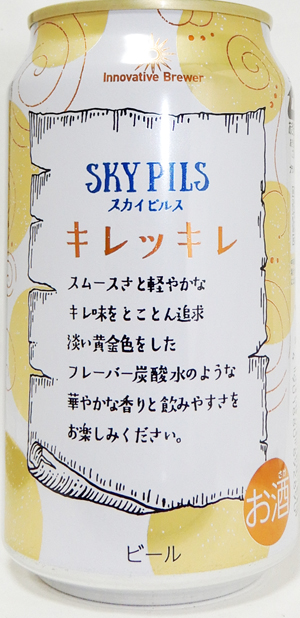 Innovative Brewer
SKY PILS
スカイピルス
キレッキレ
スムースさと軽やかな
キレ味をとことん追求
淡い黄金色をした
フレーバー炭酸水のような
華やかな香りと飲みやすさを
お楽しみください。
さけ
お酒
ビール